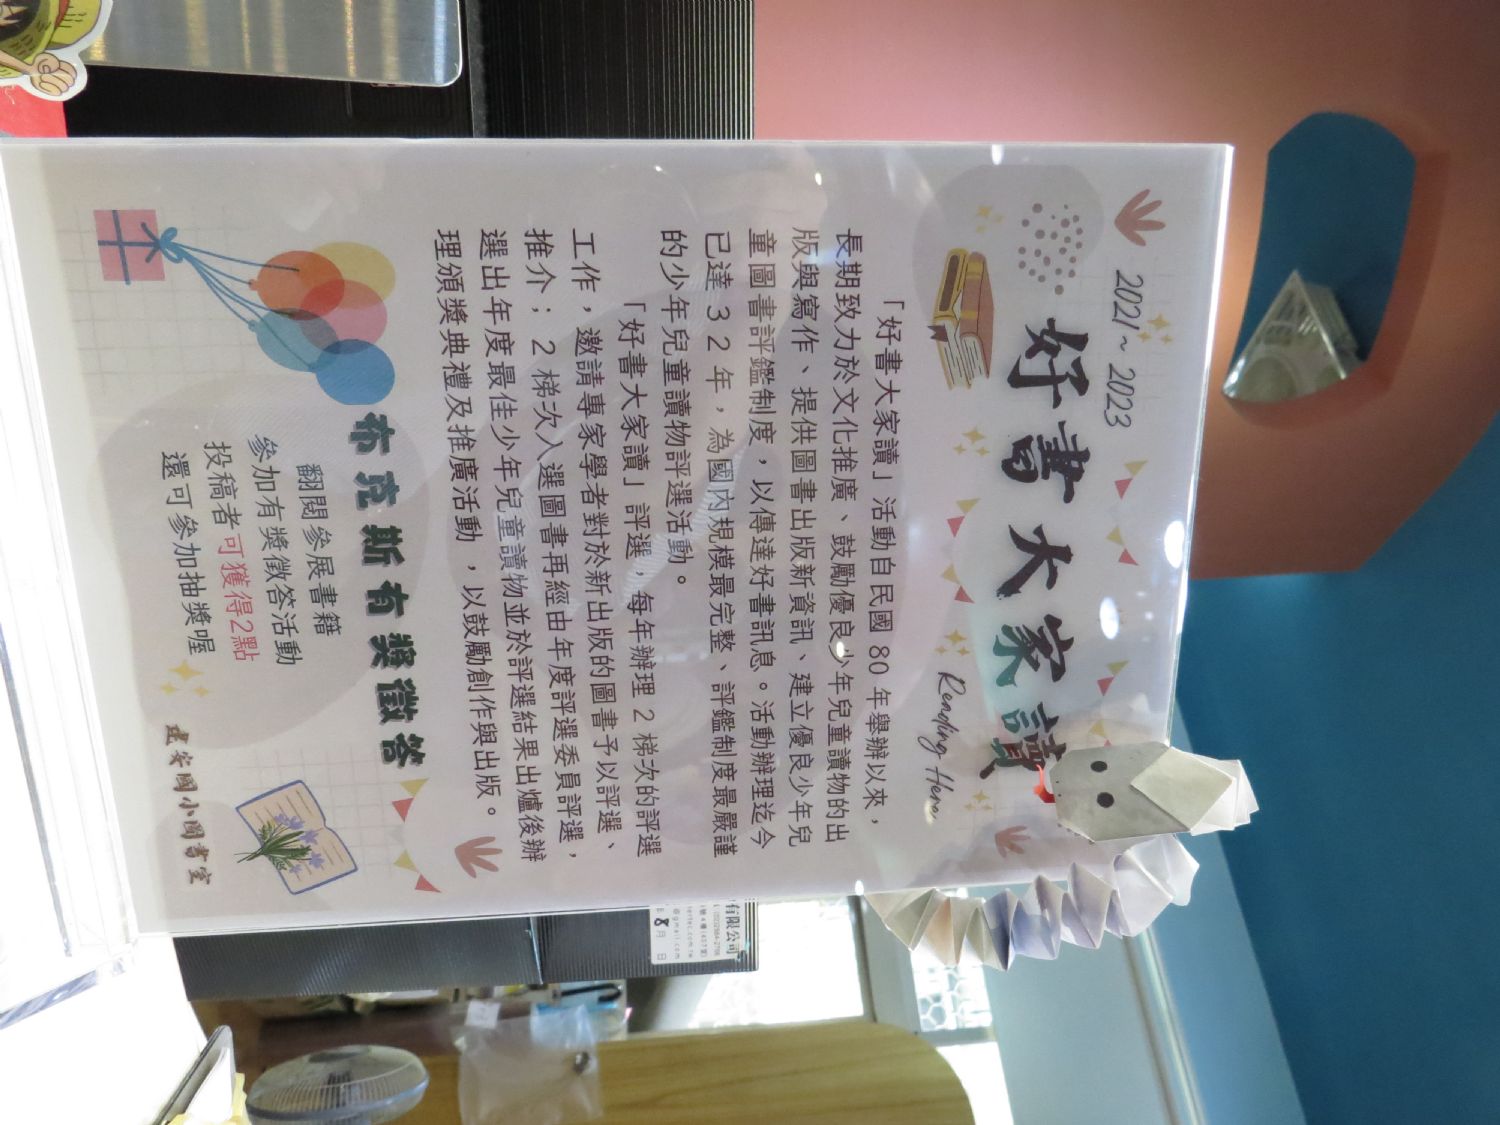 2021~2023
好書大家讀
Reading Here
「好書大家讀」活動自民國 80 年舉辦以來，
長期致力於文化推廣、鼓勵優良少年兒童讀物的出
版與寫作、提供圖書出版新資訊、建立優良少年兒
童圖書評鑑制度，以傳達好書訊息。活動辦理迄今
已達 32 年，為國內規模最完整、評鑑制度最嚴謹
的少年兒童讀物評選活動。
「好書大家讀」評選，每年辦理 2 梯次的評選
工作，邀請專家學者對於新出版的圖書予以評選、
推介；2 梯次入選圖書再經由年度評選委員評選，
選出年度最佳少年兒童讀物並於評選結果出爐後辦
理頒獎典禮及推廣活動，以鼓勵創作與出版。
布克斯有獎徵答
翻閱參展書籍
參加有獎徵答活動
投稿者可獲得2點
還可參加抽獎喔
建安國小圖書室
有限公司
8月 日